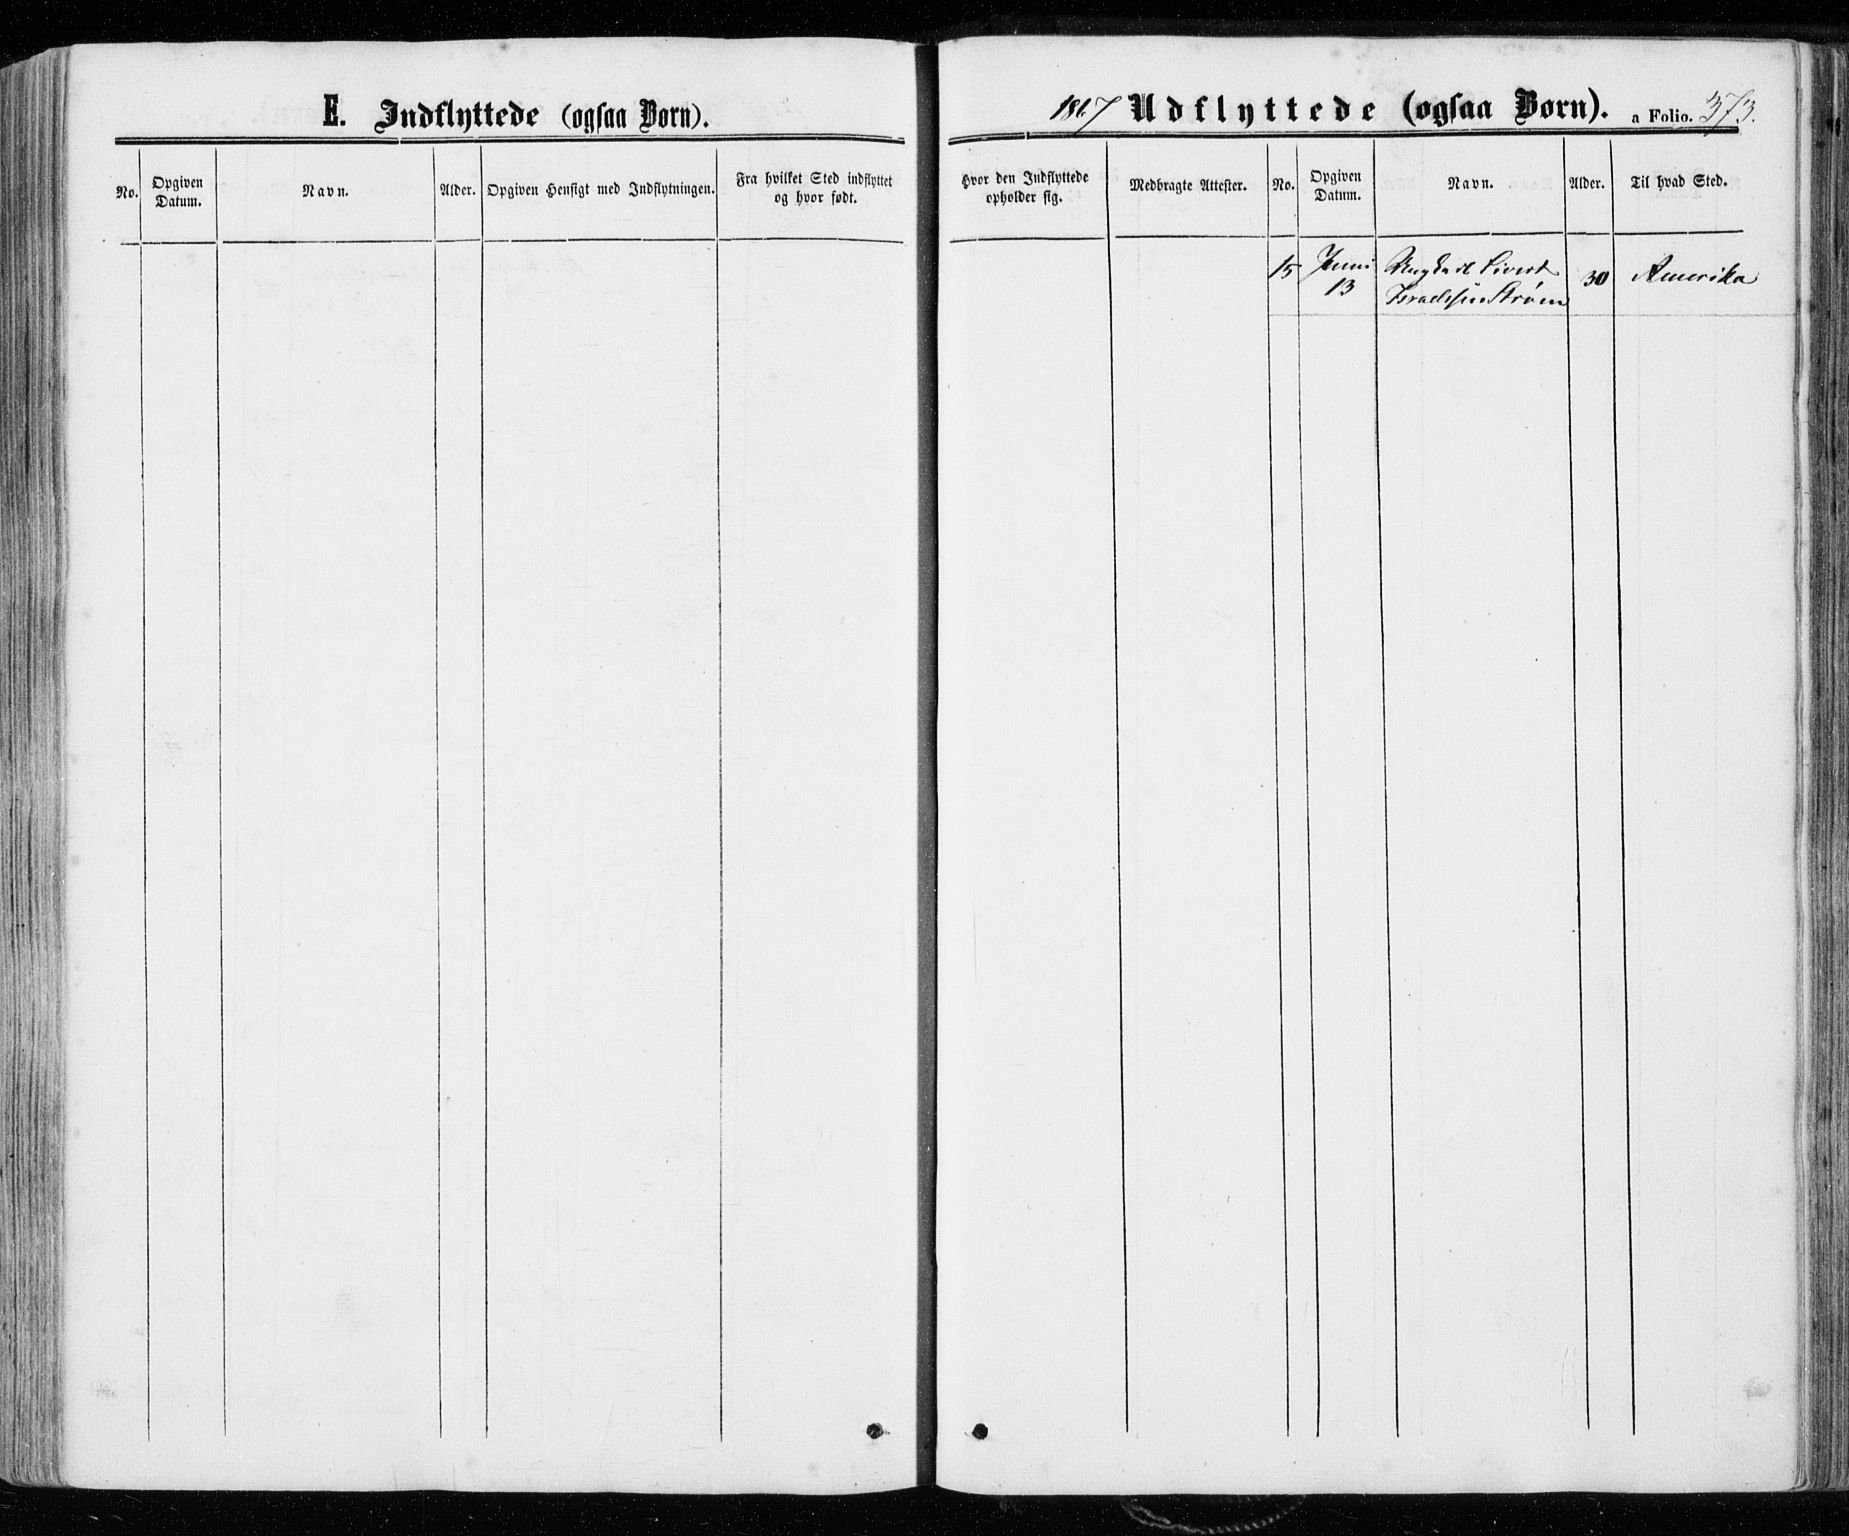 E. Indflyttede (ogsaa Børn).
No.
Opgiven Datum.
Navn.
Alder.
Opgiven Hensigt med Indflytningen.
Fra hvilket Sted indflyttet og hvor født.
1867 Udflyttede (ogsaa Børn). a Folio. 373.
Hvor den Indflyttede opholder sig.
Medbragte Attester.
No.
Opgiven Datum.
Navn.
Alder.
Til hvad Sted.
15 Juni Sivert
13 Israelsen Strøm 30 Amerika